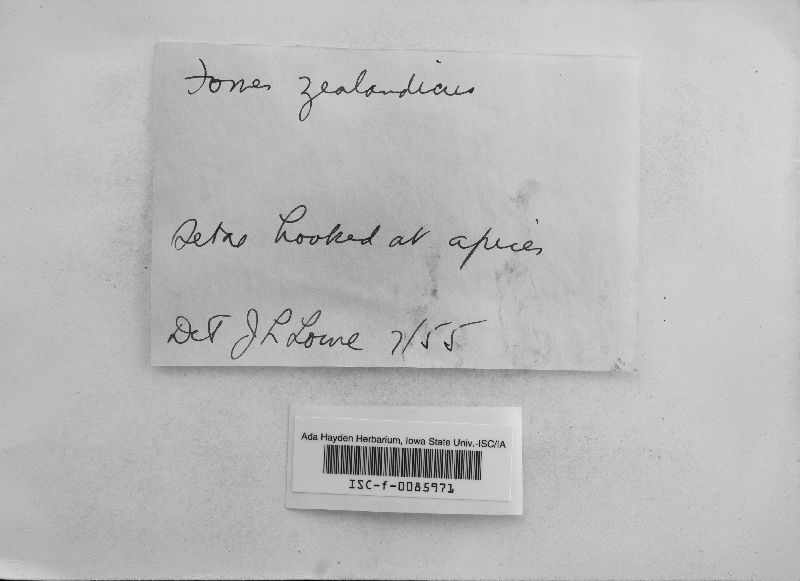 Fomes zealandicus
setae hooked at apices
Det J L Lowe 7/55
Ada Hayden Herbarium, Iowa State Univ.-ISC/IA
ISC-f-0085971